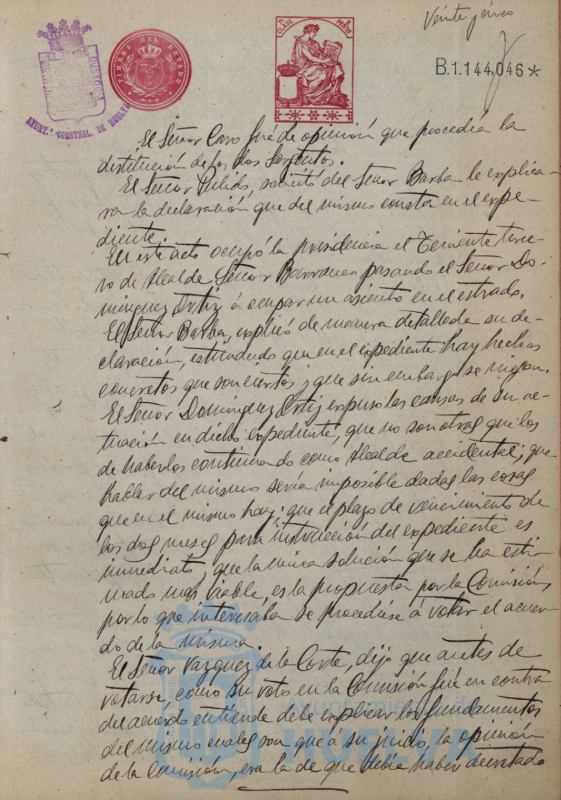 Veinte
B.1.144,046*
TIMBRE DEL ESTADO
AYUNT.º CONSTNAL. DE HUELVA
El Señor Caro fué de opinión que procedía la
distitución de los dos Sargentos.
El Señor Pulido, solicitó del Señor Barba le explica-
ra la declaración que del mismo consta en el expe-
diente.
En este acto ocupó la presidencia el Teniente terce-
ro de Alcalde Señor pasando el Señor Do-
minguez Ortiz á ocupar un asiento en el estrado.
El Señor Barba, explicó de manera detallada su de-
claración, que en el expediente hay hechos
concretos que son ciertos y que sin embargo se niegan.
El Señor Dominguez Ortiz expuso las causas de su ac-
tuación en dicho expediente, que no son otras que los
de haberlos continuado como Alcalde accidental; que
hablar del mismo sería imposible dadas las cosas
que en el mismo hay; que el plazo de vencimiento de
los dos meses para instrucción del expediente es
inmediato, que la única solución que se ha esti-
mado mas viable, es la propuesta por la Comisión,
por lo que interesaba se procediese á votar el acuer-
do de la misma.
El Señor Vazquez de la Corte, dijo que antes de
votarse, como su voto en la Comisión fué en contra
del acuerdo entiende debe explicar los fundamentos
del mismo cuales son que á su juicio, la opinión
de la Comisión, era la de que debía haber decretado